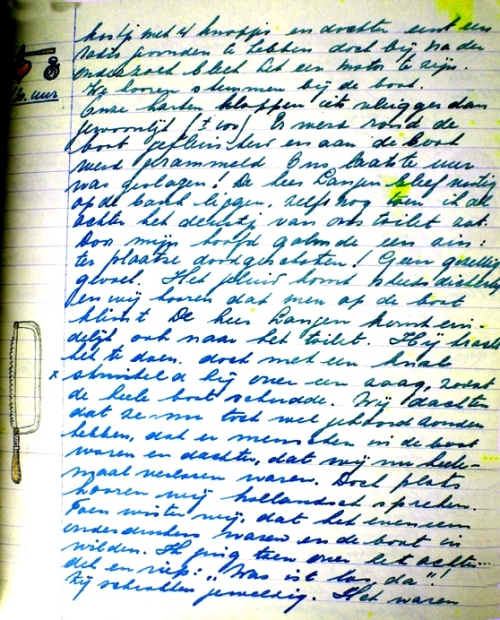 kastje met 4 knopjes en dachten eerst een
radio gevonden te hebben doch bij nader
onderzoek bleek het een motor te zijn.
We hooren stemmen bij de boot.
uur
Onze harten kloppen iets vlugger dan
gewoonlijk (± 100). Er werd rond de
boot gefluisterd en aan de boot
werd gerammeld. Ons laatste uur
was geslagen! De heer Langen bleef rustig
op de bank liggen, zelfs nog toen ik al
achter het deurtje van ons toilet zat.
Door mijn hoofd galmde een zin:
ter plaatse doodgeschoten! Geen gezellig
gevoel. Het geluid komt steeds dichterbij
en wij hooren dat men op de boot
klimt. De heer Langen komt ein-
delijk ook naar het toilet. Hij tracht
het te doen. doch met een knal
x struikelde hij over een zaag, zoodat
de heele boot schudde. Wij dachten
dat ze nu toch wel gehoord zouden
hebben, dat er menschen in de boot
waren en dachten, dat wij nu hele-
maal verloren waren. Doch plots
hooren wij hollandsch spreken.
Toen wisten wij, dat het eveneens
onderduikers waren en de boot in
wilden. Ik ging toen over het achter-
dek en riep: "Was ist los, da"!
Zij schrokken geweldig. Het waren